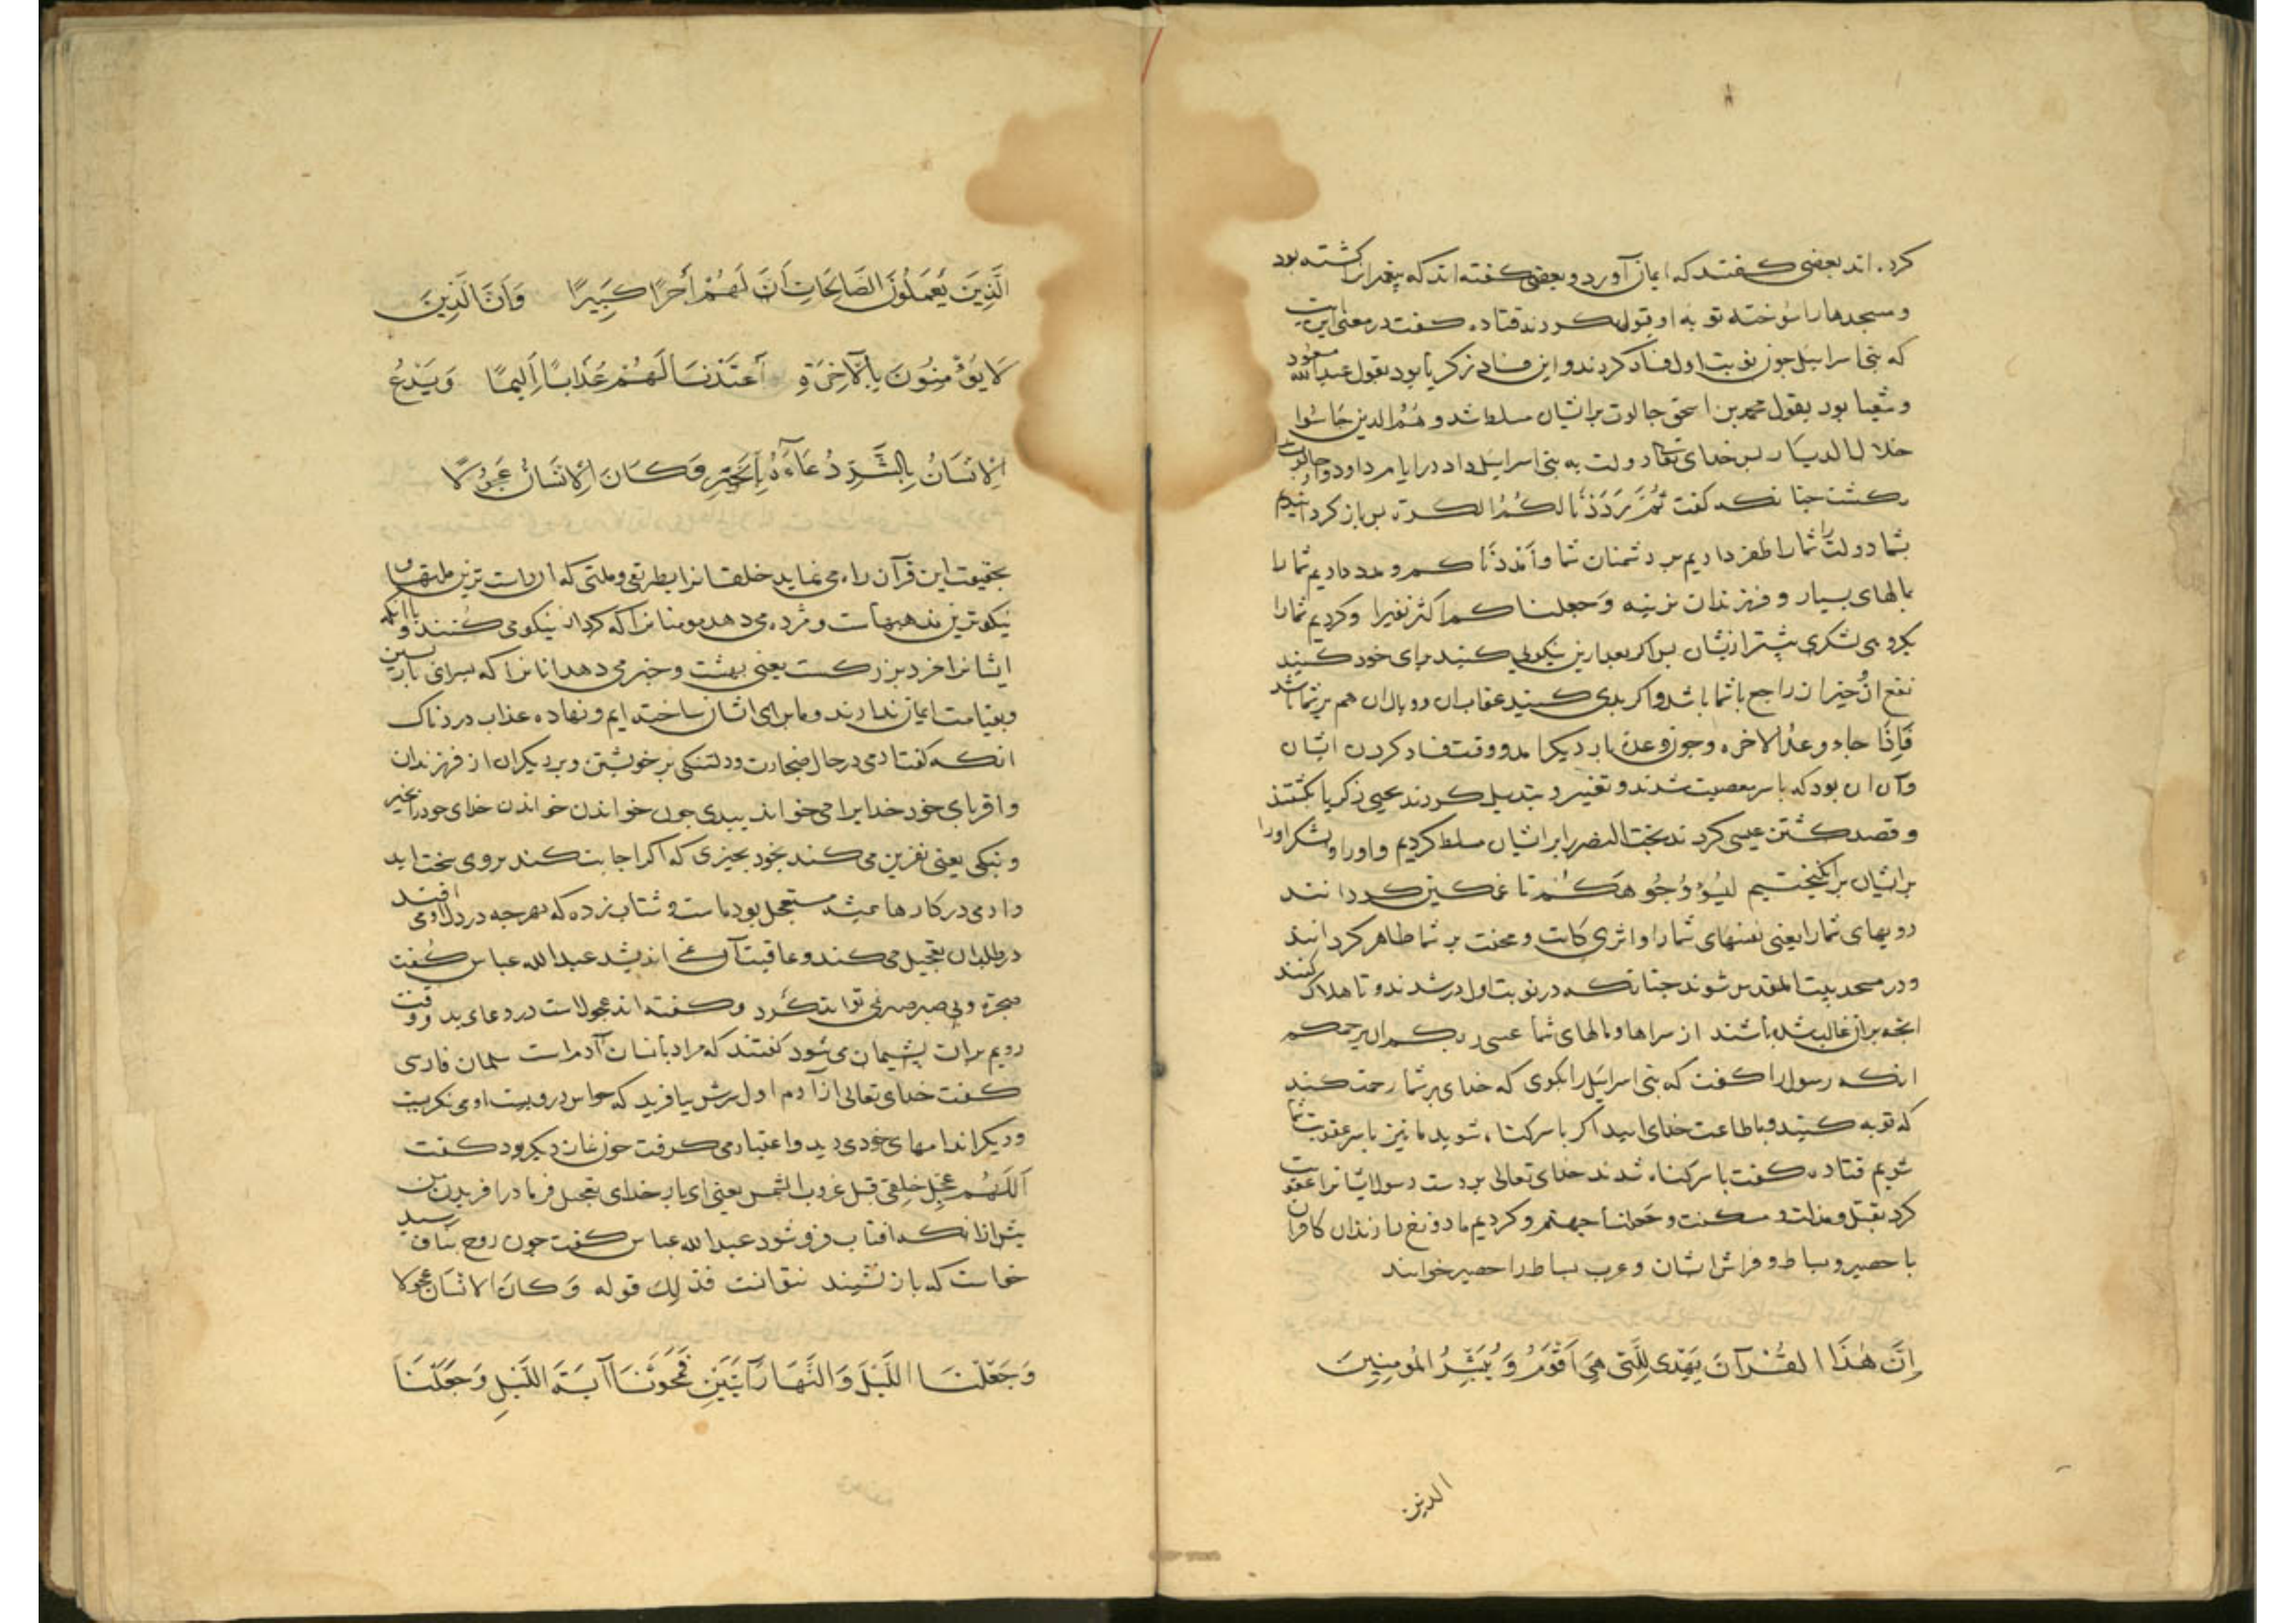 کرده اند بعضی کفتند که ایمان آورد و بعضی کفته اند که پیغمبرانرا کشته بود
و مسجدها را سوخته توبه او قبول کردند قتاده کفت در معنی این ایت
که بنی اسرایل جون نوبت اول فساد کردند و این فساد زکریا بود بقول عبدالله مسعود
و شعیا بود بقول محمد بن اسحق جالوت برایشان مسلط شد و هم الذین جاسوا
خلال الدیار پس خدای تعالی دولت به بنی اسرایل داد در ایام داود و جالوت
بکشت جنانکه کفت ثُمَّ رَدَدْنَا لکُمُ الکرة پس باز کردانیدیم
بشما دولت را شما را ظفر دادیم بر دشمنان شما وَاَمْدَدْنَا کم و مدد دادیم شما را
بمالهای بسیار و فرزندان نرینه وَجعلنا کم اکثر نفیرا و کردیم شما را
بکروهی لشکری بیشتر ازیشان پس اکر بعد ازین نیکویی کنید برای خود کنید
نفع ان خیر ان راجع باشما باشد و اکر بدی کنید عقاب ان و وبال ان هم بر شما باشد
فَاِذَا جاء وعدُ الاخره و جون وعدۀ بار دیکر امد و وقت فساد کردن ایشان
وآن ان بود که باسر معصیت شدند و تغییر و تبدیل کردند یحیی زکریا بکشتند
و قصد کشتن عیسی کردند بخت النصر را بر ایشان مسلط کردیم و او را و لشکر او را
بر ایشان برانکیختیم لیسُوْؤُا وُجُوهَکُمْ تا غمکین کردانند
رویهای شما را یعنی نفسهای شما را و اثر ی کابت و محنت بر شما ظاهر کردانند
و در مسجد بیت المقدس شوند جنانکه در نوبت اول در شدند و تا هلاک کنند
انجه بر ان غالب شده باشند از سراها و مالهای شما عسی ربکم ان یرحمکم
انکه رسول را کفت که بنی اسرایل را بکوی که خدای بر شما رحمت کند
که توبه کنید و باطاعت خدای ایید اکر باسر کناه شوید ما نیز باسر عقوبت شما
شویم قتاده کفت باسر کناه شدند خدای تعالی بر دست رسول ایشانرا عقوبت
کرد بقتل و مذلت و مسکنت وجعلنا جهنم و کردیم ما دوزخ را زندان کافران
با حصیر و بساط و فراش ایشان و عرب بساط را حصیر خوانند
اِنَّ هٰذَا القُرْآنَ یَهْدی لِلَّتی هِیَ اَقْوَمُ وَ یُبَشِّرُ المُومِنِینَ
الذین
الَّذِینَ یَعْمَلُونَ الصَّالِحَاتِ اَنَّ لَهُمْ اَجْرًا کَبِیرًا وَاَنَّ الَّذِینَ
لَا یُؤْمِنُونَ بِالْآخِرَةِ اَعْتَدْنَا لَهُمْ عَذَابًا اَلِیمًا وَیَدْعُ
الْاِنْسَانُ بِالشَّرِّ دُعَآءَهُ بِالْخَیْرِ وَکَانَ الْاِنْسَانُ عَجُولًا
بحقیقت این قرآن راه می نماید خلقانرا بطریقی و ملتی که ان راست ترین ملتهاست و
نیکوترین مذهبهاست و مژده می دهد مومنانرا که کردار نیکو می کنند و باانکه
ایشانرا مزد بزرکست یعنی بهشت و خبر می دهد انانرا که بسرای بازپسین
و بقیامت ایمان ندارند و ما برای ایشان ساخته ایم و نهاده عذاب دردناک
انکه کفت ادمی در حال ضجارت و دلتنکی بر خویشتن و بر دیکران از فرزندان
و اقربای خود خدایرا می خواند ببدی جون خواندن خواندن خدای خود را بخیر
و نیکی یعنی نفرین می کند بخود بجیزی که اکر اجابت کند بر وی سخت اید
و ادمی در کارها همیشه مستعجل بوده است و شتاب زده که هرجه در دل او می افتد
در طلب ان تعجیل می کند و عاقبت آن نمی اندیشد عبدالله عباس کفت
ضجره و بی صبر صبر نمی تواند کرد و کفته اند عجولاست در دعای بد و وقت
رویم بر ان پشیمان می شود کفتند که مراد بانسان آدم است سلمان فارسی
کفت خدای تعالی از آدم اول سرش بیافرید که حواس دروست او می نکریست
و دیکر اندامهای خود می دید و اعتبار می کرفت جون نماز دیکر بود کفت
اَللّهُمَّ عَجِّل خلقی قبل غروب الشمس یعنی ای بار خدای تعجیل فرما در افریدن من
پیش از انکه افتاب فرو شود عبدالله عباس کفت جون روح بناف رسید
خواست که باز نشیند نتوانست فذلک قوله وَ کانَ الانسَان عجولا
وَجَعَلْنَا اللَّیْلَ وَالنَّهَارَ آیَتَیْنِ فَمَحَوْنَا آیَةَ اللَّیْلِ وَجَعَلْنَا